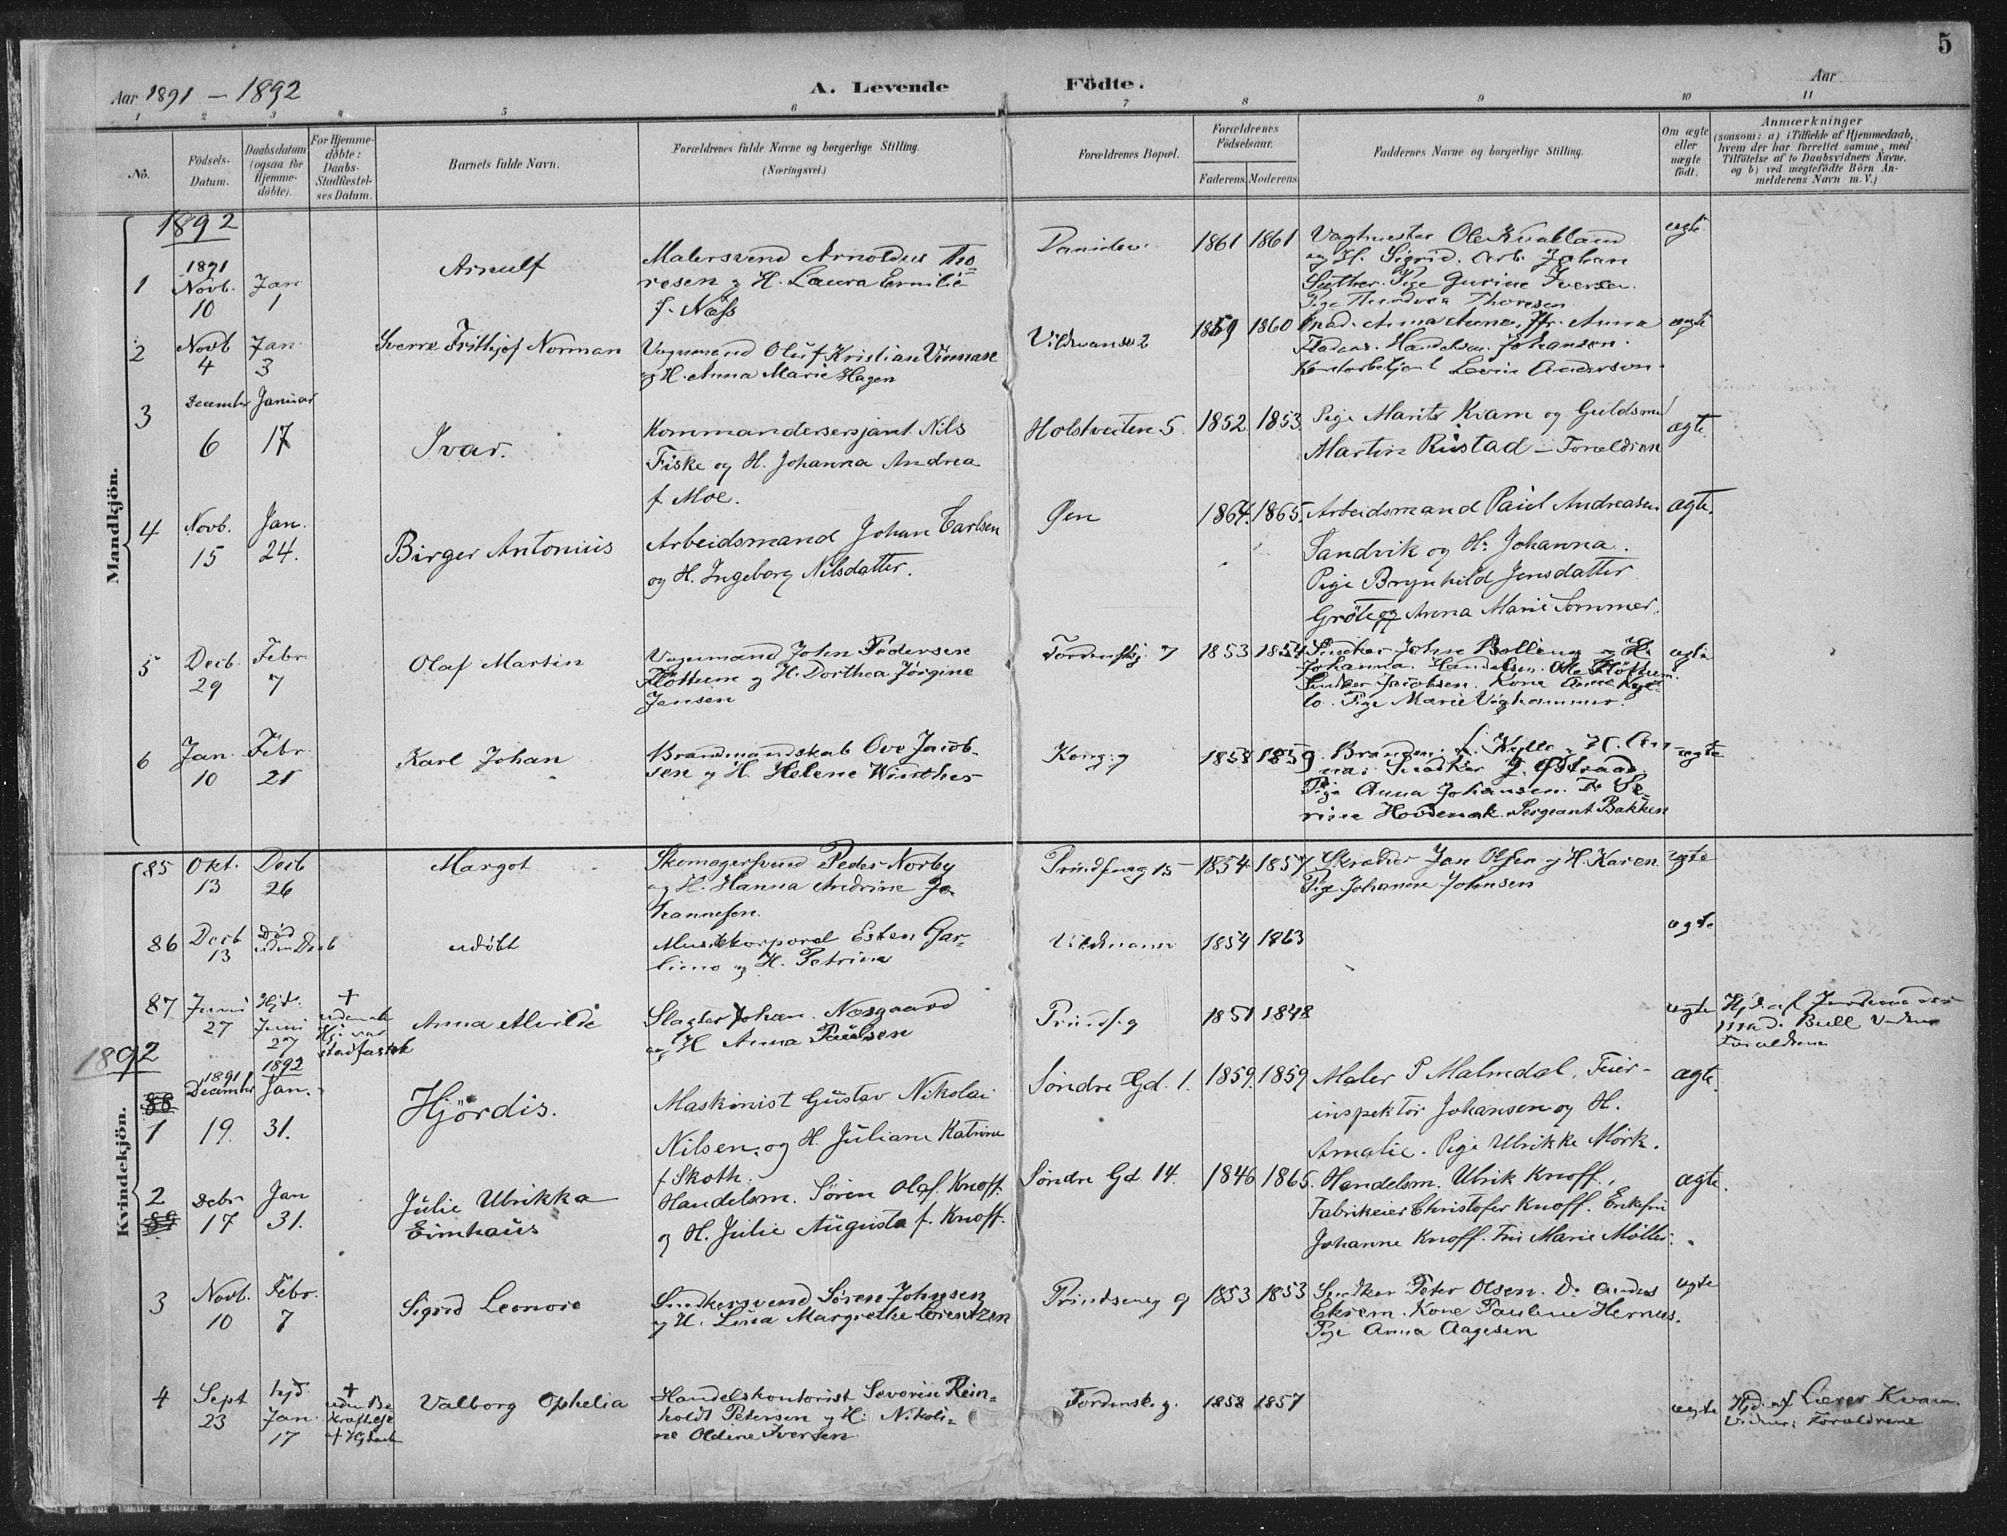 5
Aar 1891 – 1892
A. Levende Födte.
Aar
1 2 3 4 5 6 7 8 9 10 11
No.
Födsels-Datum.
Daabsdatum (ogsaa for Hjemmedöbte).
For Hjemmedöbte: Daabs-Stadfæstelses Datum.
Barnets fulde Navn.
Forældrenes fulde Navne og borgerlige Stilling.
(Næringsvei.)
Forældrenes Bopæl.
Forældrenes Födselsaar.
Faderens. Moderens.
Faddernes Navne og borgerlige Stilling.
Om ægte eller uægte födt.
Anmærkninger
(saasom: a) i Tilfælde af Hjemmedaab,
hvem der har forrettet samme, med
Tilföielse af to Daabsvidners Navne.
og b) ved uægtefödte Börn An-
melderens Navn m. V.)
Mandkjön.
1892
1 1891 Novb. 10 Jan 1
Arnulf
Malersvend Arnoldus Tho-
resen og H. Laura Emilie
f. Næss
1861 1861
Ole
og H. Sigrid. Arb. Johan
Sæther. Pige Gurine Iversen.
Pige Thoresen
ægte
2 Novb 4 Jan 3
Sverre Frithjof Norman
Vognmand Oluf Kristian
og H. Anna Marie Hagen
1859 1860
Anna Aune, Jfr. Anna
Johansen.
Andersen.
ægte
3 December 6 Januar 17
Ivar.
Kommandersersjant Nils
Fiske og H. Johanna Andrea
f Moe.
Holstveiten 5. 1852. 1853.
Pige Marits Kvam og Guldsmed
Martin Rustad – Forældren
ægte.
4 Novb. 15 Jan. 24.
Birger Antonius
Arbeidsmand Johan Carlsen
og H. Ingeborg Nilsdatter.
Øen 1864. 1865.
Arbeidsmand Paul Andreasen
Sandvik og H. Johanna.
Pige Brynhild Jensdatter
Gröte og Anna Marie Sommer.
ægte.
5 Decb. 29 Febr 7
Olaf Martin
Vognmand John Pedersen
Flöttum og H. Dorthea Jörgine
Jensen
Tordenskj. 7 1853 1854
Snedker John og H.
Johanna. Handelsm. Ole Fløttum.
Snedker Jacobsen. Kone
Pige Marie
ægte
6 Jan. 10 Febr. 21
Karl Johan
Brandmandskab Ove Jacob-
sen og H. Helene Winther
Kong.g 1858 1859
Pige Anna Johansen.
Sergeant Bakken
ægte
Kvindekjön.
85 Okt. 13 Decb 26
Margot
Skomagersvend Peder Norby
og H. Hanna Andrine Jo-
hannesen.
1854 1857
Skræder Jan Olsen og H. Karen
Pige Johanne Johnsen
ægte
86 Decb 13 Død uden Daab
udöbt
Musikkorporal Esten Gar-
og H. Petrine
1854 1863
ægte
87 Juni 27 Hjd. Juni 27
+
Hj var
stadfæstet
Anna Alvilde
Slagter Johan Næsgaard
og H Anna Paulsen
Prinds.g 1851 1848
ægte
Hjd. af Jordemoder
mad. Bull
Forældrene
1892
88 1 1891 December 19. 1892 Jan. 31.
Hjördis.
Maskinist Gustav Nikolai
Nilsen og H. Juliane Katrine
f Skoth.
Söndre Gd. 1. 1859. 1859
Maler P Malmedal, Feier-
inspektör Johansen og H.
Amalie. Pige Ulrikke Mörk.
ægte.
2 89 Debr 17 Jan 31.
Julie Ulrikka
Eimhaus
Handelsm. Sören Olaf Knoff.
og H. Julie Augusta f. Knoff.
Söndre Gd 14. 1846 1865.
Handelsm. Ulrik Knoff,
Fabrikeier Christofer Knoff. Enkefru
Johanne Knoff. Fru Marie Möller.
ægte.
3 Novb. 10 Febr. 7
Sigrid Leonore
Snedkersvend Sören Johnsen
og H. Lina Margrethe Lorentzen
Prindsensg 9 1853 1853
Snedker Peter Olsen. Do Anders
Ekrem. Kone Pauline Hernes.
Pige Anna Aagesen
ægte
4 Sept 23 hjd. Jan. 17
+
uden Be
kræftelse
af Hjdaab
Valborg Ophelia
Handelskontorist Severin Rein-
holdt Petersen og H. Nikoli-
ne Oldine Iversen
Tordensk.g. 1858 1857
ægte
Hjd. af Lærer Kvam.
Vidner: Forældrene